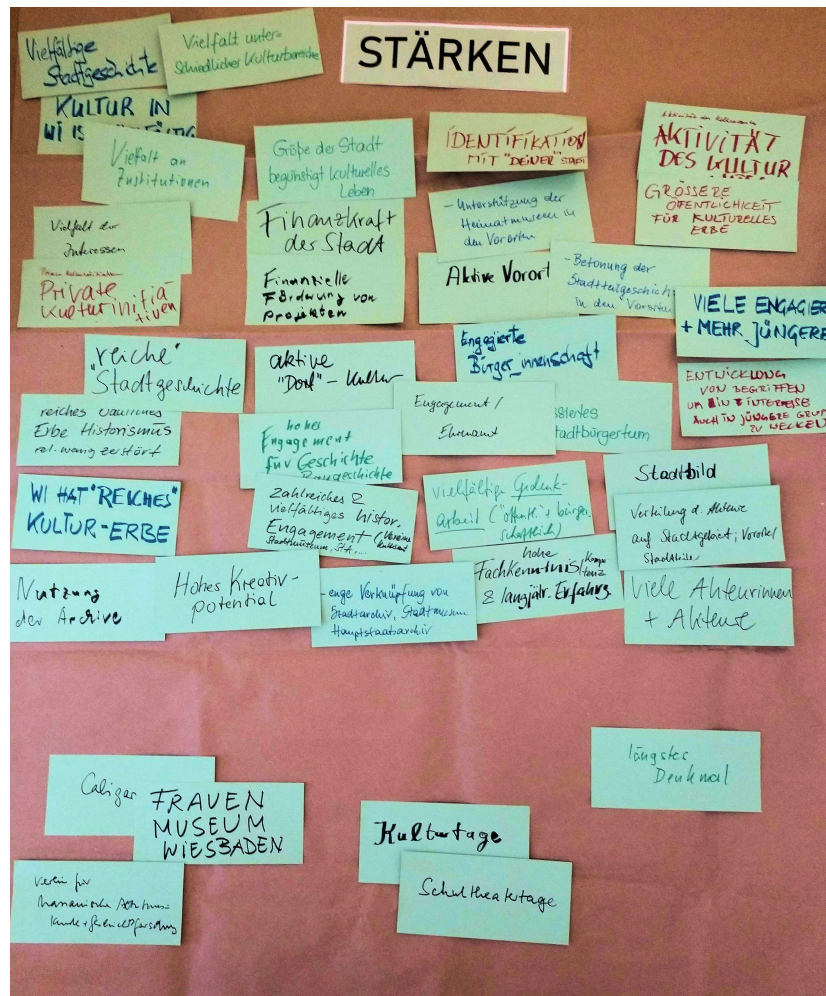 STÄRKEN
Vielfältige
Stadtgeschichte
Vielfalt unter=
Schiedlicher Kulturbereiche
KULTUR IN
WI IS
Vielfalt an
Institutionen
Größe der Stadt
begünstigt kulturelles
Leben
IDENTIFIKATION
MIT "DEINER" STADT
AKTIVITÄT
DES KULTUR
GRÖSSERE
ÖFFENTLICHKEIT
FÜR KULTURELLES
ERBE
Vielfalt der
Interessen
Finanzkraft
der Stadt
- Unterstützung der
Heimatmuseen in
den Vororten
Private
Kulturinitia-
tiven
Finanzielle
Förderung von
Projekten
Aktive Vorort
- Betonung der
Stadtteilgeschich
in den Vororten
VIELE ENGAGIER
+ MEHR JÜNGERE
"reiche"
Stadtgeschichte
aktive
"Dorf" - Kultur
Engagierte
Bürger_innenschaft
ENTWICKLUNG
VON BEGRIFFEN
UM EIN INTERESSE
AUCH IN JÜNGERE GRUP
ZU WECKEN
reiches bauliches
Erbe Historismus
rel. wenig zerstört
hohes
Engagement
für Geschichte
Baugeschichte
Engagement /
Ehrenamt
ssiertes
tadtbürgertum
WI HAT "REICHES"
KULTUR-ERBE
zahlreiches &
vielfältiges histor.
Engagement (Vereine
Stadtmuseum, StA,...
vielfältige Gedenk-
arbeit ("öffentl." & bürger-
schaftlich)
Stadtbild
Verteilung d. Akteure
auf Stadtgebiet; Vororte/
Stadtteile
Nutzung
der Archive
Hohes Kreativ-
potential
- enge Verknüpfung von
Stadtarchiv, Stadtmuseum
Hauptstaatsarchiv
hohe
Fachkenntnis/Kompe
tenz
& langjähr. Erfahrg
Viele Akteurinnen
+ Akteure
längstes
Denkmal
Caligar
FRAUEN
MUSEUM
WIESBADEN
Kulturtage
Verein für
Nassauische Altertums-
kunde + Geschichtsforschung
Schultheatertage